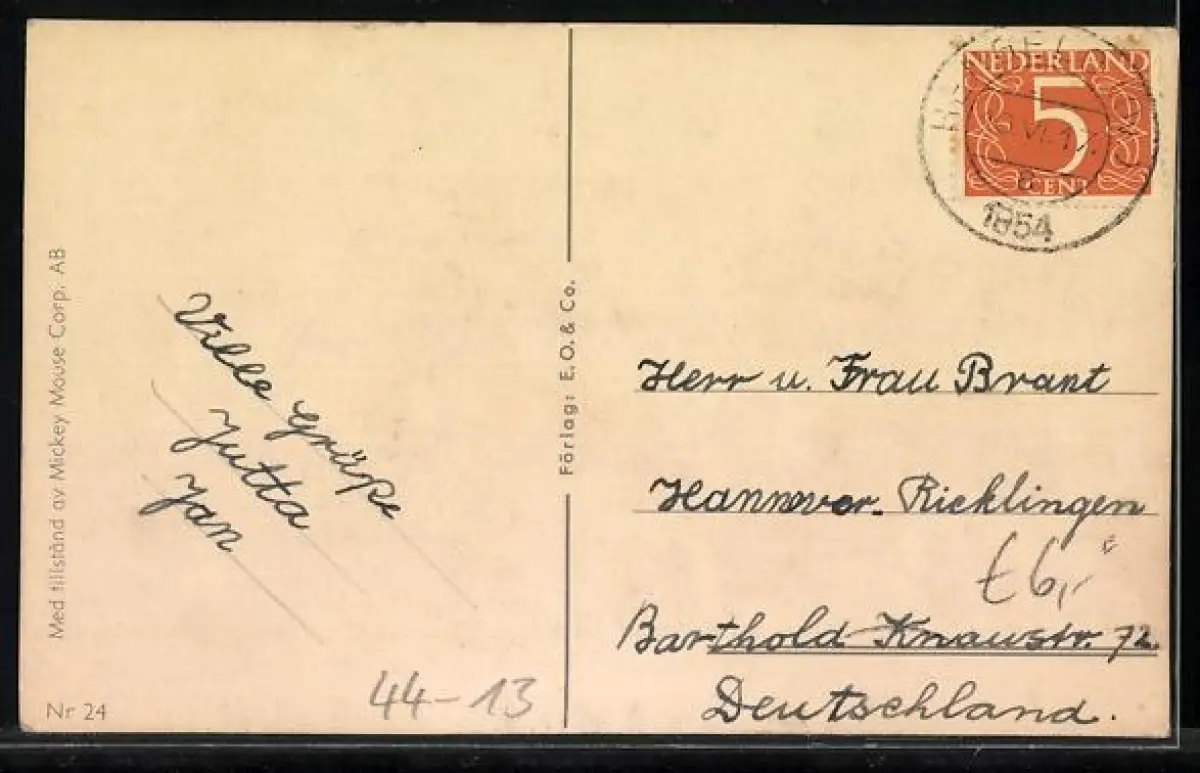 Med tillstånd av Mickey Mouse Corp. AB
Nr 24
Viele Grüße
Jutta
Jan
44-13
Förlag: E. O. & Co.
NEDERLAND
5
CENT
1954
Herr u. Frau Brant
Hannover. Ricklingen
€ 6,-
Barthold Knaustr. 72.
Deutschland.